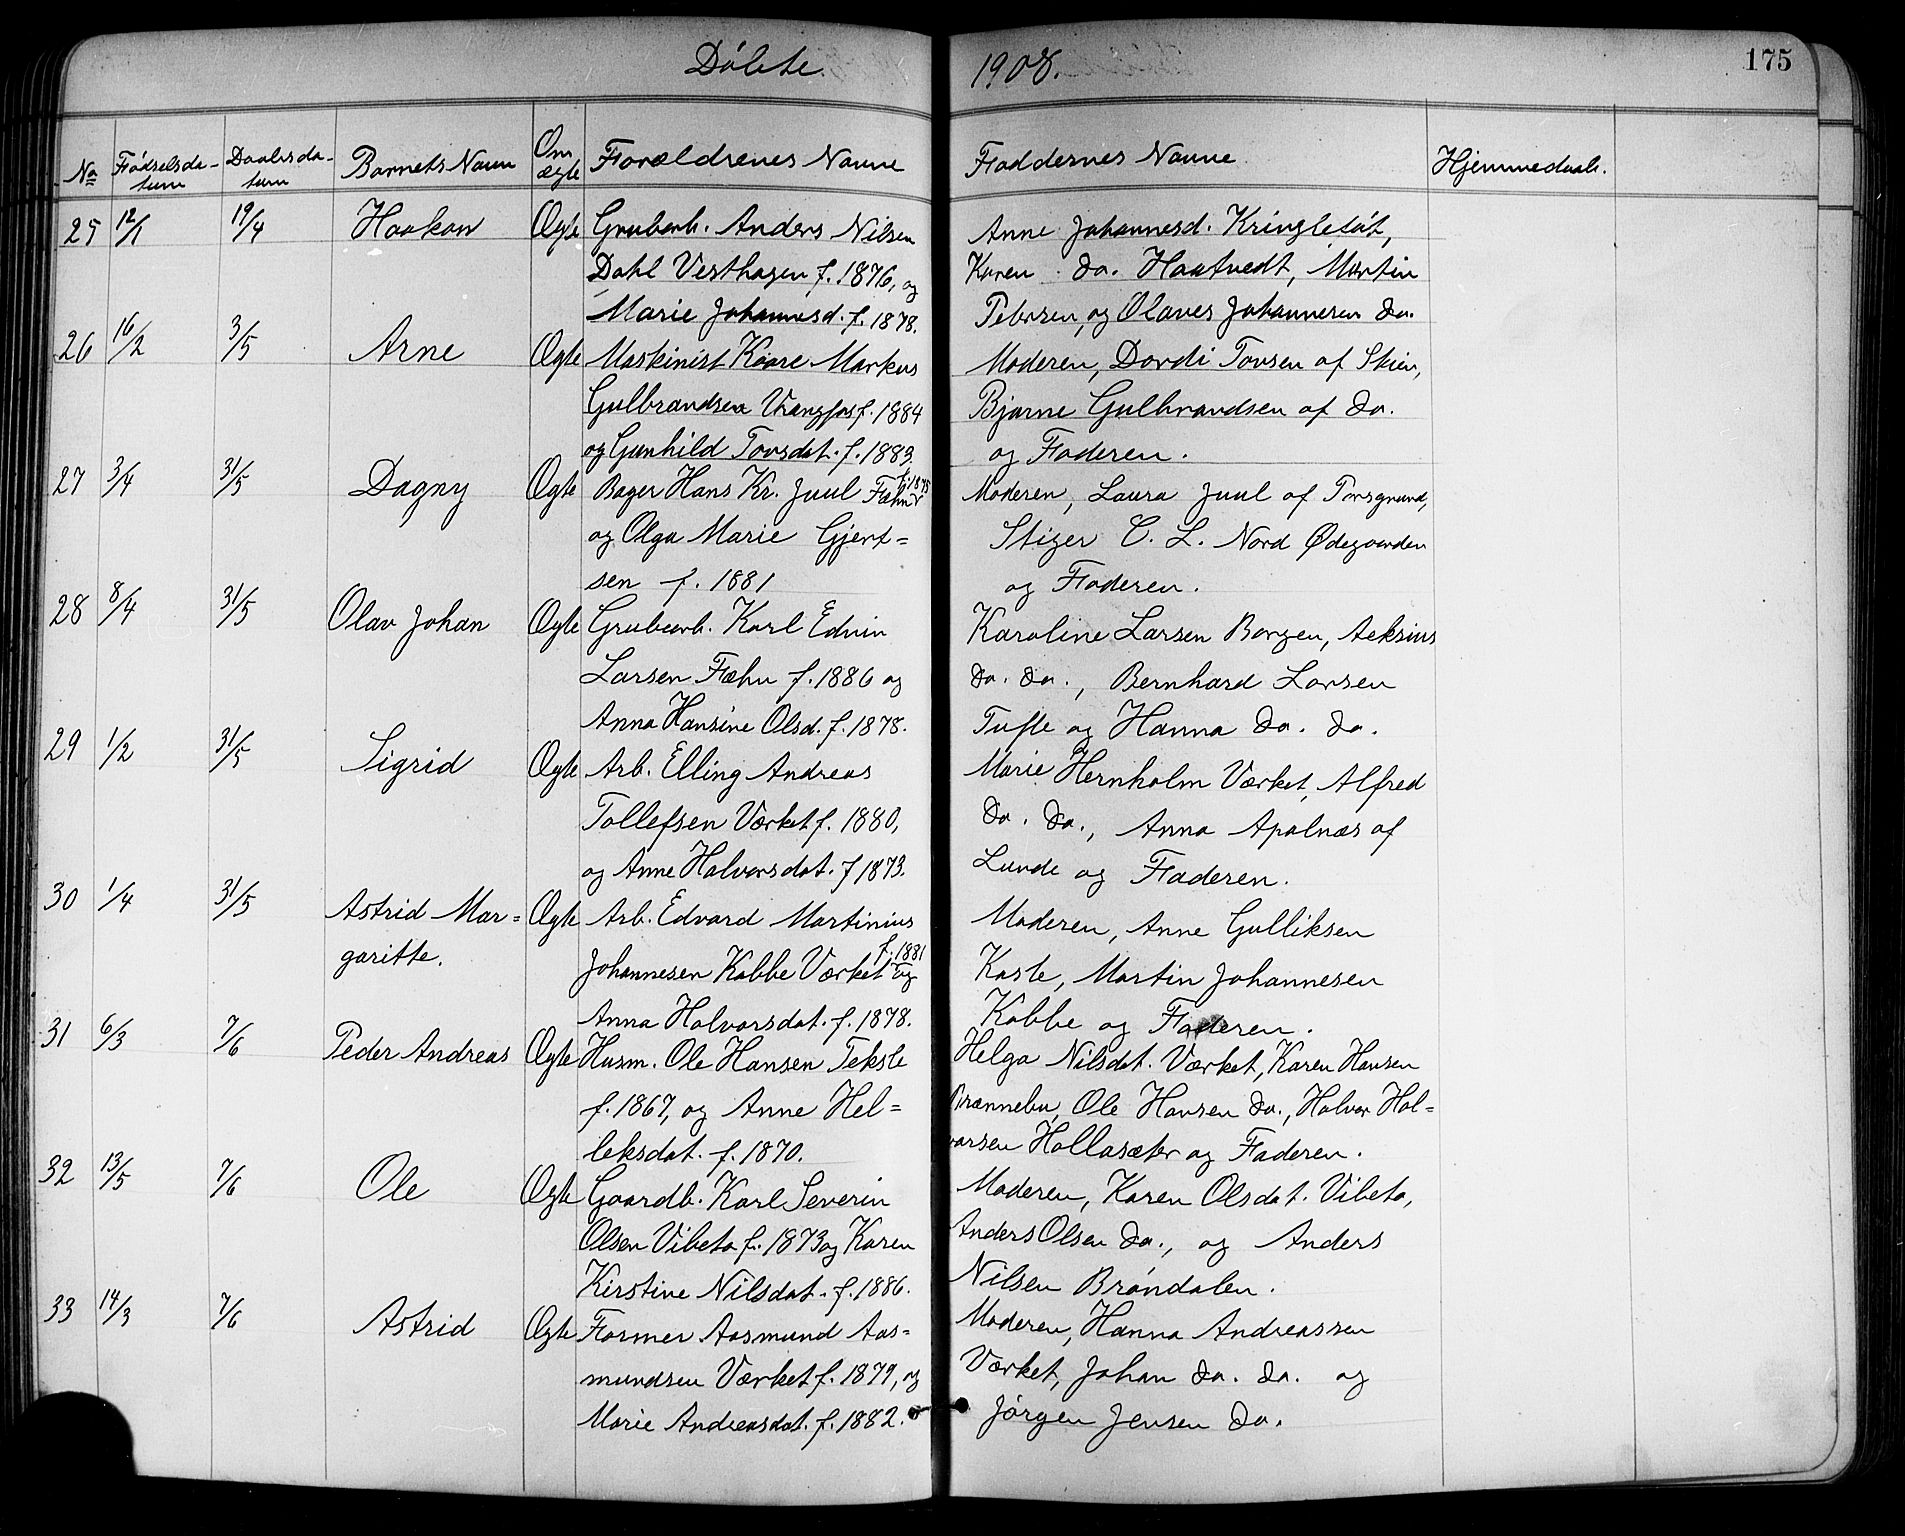 Døbte 1908. 175
No Fødselsda- Daabsda- Barnets Navn Om Forældrenes Navne Faddernes Navne Hjemmedaab.
tum tum ægte
25 12/1 19/4 Haakon Ægte Grubearb. Anders Nilsen Anne Johannesd. Kringletöt,
Dahl Vesthagen f. 1876, og Karen do. Haatvedt, Martin
Marie Johannesd. f. 1878. Petersen, og Olaves Johannesen do.
26 16/2 3/5 Arne Ægte Maskinist Kaare Markus Moderen, Dordi Tovsen af Skien,
Gulbrandsen Vrangfos f. 1884 Bjarne Gulbrandsen af do.
og Gunhild Tovsdat. f. 1883. og Faderen.
27 3/4 31/5 Dagny Ægte Bager Hans Kr. Juul Fæhn f. 1875 Moderen, Laura Juul af Porsgrund,
og Olga Marie Gjert= Stiger C. L. Nord Ødegaarden
sen f. 1881 og Faderen.
28 8/4 31/5 Olav Johan Ægte Grubearb. Karl Edvin Karoline Larsen Borgen, Aeksius
Larsen Fæhn f. 1886 og do. do., Bernhard Larsen
Anna Hansine Olsd. f. 1878. Tufte og Hanna do. do.
29 1/2 31/5 Sigrid Ægte Arb. Elling Andreas Marie Hernholm Værket, Alfred
Tollefsen Værket f. 1880, do. do., Anna Apalnæs af
og Anne Halvorsdat. f 1873. Lunde og Faderen.
30 1/4 31/5 Astrid Mar= Ægte Arb. Edvard Martinius Moderen, Anne Gulliksen
garitte. Johannesen Kobbe Værket f. 1881 og Kaste, Martin Johannesen
Anna Halvorsdat. f. 1878. Kobbe og Faderen.
31 6/3 7/6 Peder Andreas Ægte Husm. Ole Hansen Teksle Helga Nilsdat. Værket, Karen Hansen
f. 1867, og Anne Hel= Brænnebu, Ole Hansen do., Halvor Hal=
leksdat. f. 1870. vorsen Hollasæter og Faderen.
32 13/5 7/6 Ole Ægte Gaardb. Karl Severin Moderen, Karen Olsdat. Vibeto,
Olsen Vibeto f. 1873 og Karen Anders Olsen do., og Anders
Kirstine Nilsdat. f. 1886. Nilsen Bröndalen.
33 14/3 7/6 Astrid Ægte Former Aasmund Aas= Moderen, Hanna Andreassen
mundsen Værket f. 1879, og Værket, Johan do. do. og
Marie Andreasdat. f. 1882. Jörgen Jensen do.